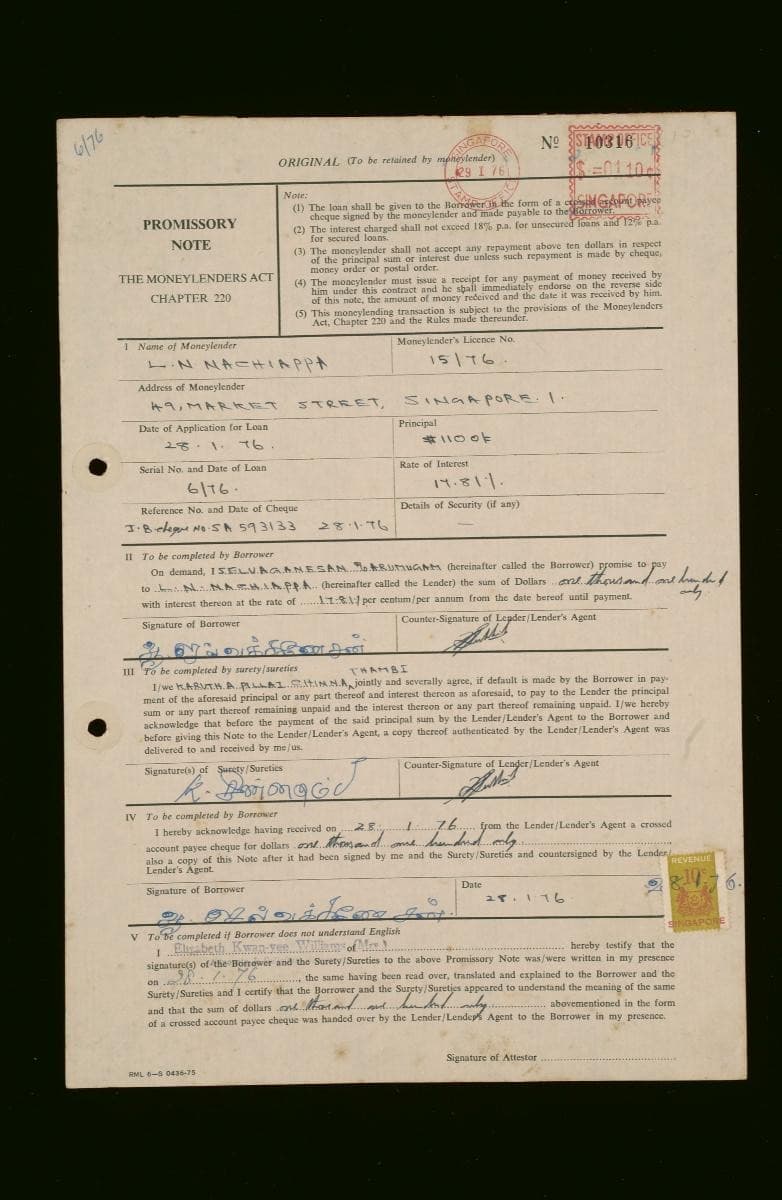 6/76
Nº 10316
STAMP OFFICE
$ =01.10c
SINGAPORE
SINGAPORE
29 I 76
STAMP OFFICE
ORIGINAL (To be retained by moneylender)
PROMISSORY
NOTE
THE MONEYLENDERS ACT
CHAPTER 220
Note:
(1) The loan shall be given to the Borrower in the form of a crossed account payee
cheque signed by the moneylender and made payable to the Borrower.
(2) The interest charged shall not exceed 18% p.a. for unsecured loans and 12% p.a.
for secured loans.
(3) The moneylender shall not accept any repayment above ten dollars in respect
of the principal sum or interest due unless such repayment is made by cheque,
money order or postal order.
(4) The moneylender must issue a receipt for any payment of money received by
him under this contract and he shall immediately endorse on the reverse side
of this note, the amount of money received and the date it was received by him.
(5) This moneylending transaction is subject to the provisions of the Moneylenders
Act, Chapter 220 and the Rules made thereunder.
I Name of Moneylender
L.N NACHIAPPA
Moneylender's Licence No.
15/76.
Address of Moneylender
49, MARKET STREET, SINGAPORE. 1.
Date of Application for Loan
28.1.76.
Principal
$1100
Serial No. and Date of Loan
6/76.
Rate of Interest
17.81%
Reference No. and Date of Cheque
I.B cheque No. SA 593133 28.1.76
Details of Security (if any)
—
II To be completed by Borrower
On demand, I SELVAGANESAN S/O ARUMUGAM (hereinafter called the Borrower) promise to pay
to L. N. NACHIAPPA (hereinafter called the Lender) the sum of Dollars one thousand one hundred
only
with interest thereon at the rate of 17.81% per centum/per annum from the date hereof until payment.
Signature of Borrower
Counter-Signature of Lender/Lender's Agent
III To be completed by surety/sureties
THAMBI
I/we KARUTHA PILLAI CHINNA jointly and severally agree, if default is made by the Borrower in pay-
ment of the aforesaid principal or any part thereof and interest thereon as aforesaid, to pay to the Lender the principal
sum or any part thereof remaining unpaid and the interest thereon or any part thereof remaining unpaid. I/we hereby
acknowledge that before the payment of the said principal sum by the Lender/Lender's Agent to the Borrower and
before giving this Note to the Lender/Lender's Agent, a copy thereof authenticated by the Lender/Lender's Agent was
delivered to and received by me/us.
Signature(s) of Surety/Sureties
Counter-Signature of Lender/Lender's Agent
K. சின்னதம்பி
IV To be completed by Borrower
I hereby acknowledge having received on 28. 1. 76 from the Lender/Lender's Agent a crossed
account payee cheque for dollars one thousand one hundred only
also a copy of this Note after it had been signed by me and the Surety/Sureties and countersigned by the Lender/
Lender's Agent.
Signature of Borrower
Date
28.1.76
REVENUE
10c
SINGAPORE
28.1.76.
ஆ. செல்வக்கணேசன்.
V To be completed if Borrower does not understand English
I Elizabeth Kwan-yee Williams (Mrs.) of hereby testify that the
signature(s) of the Borrower and the Surety/Sureties to the above Promissory Note was/were written in my presence
on 28.1.76, the same having been read over, translated and explained to the Borrower and the
Surety/Sureties and I certify that the Borrower and the Surety/Sureties appeared to understand the meaning of the same
and that the sum of dollars one thousand one hundred only abovementioned in the form
of a crossed account payee cheque was handed over by the Lender/Lender's Agent to the Borrower in my presence.
Signature of Attestor
RML 6—S 0436-75